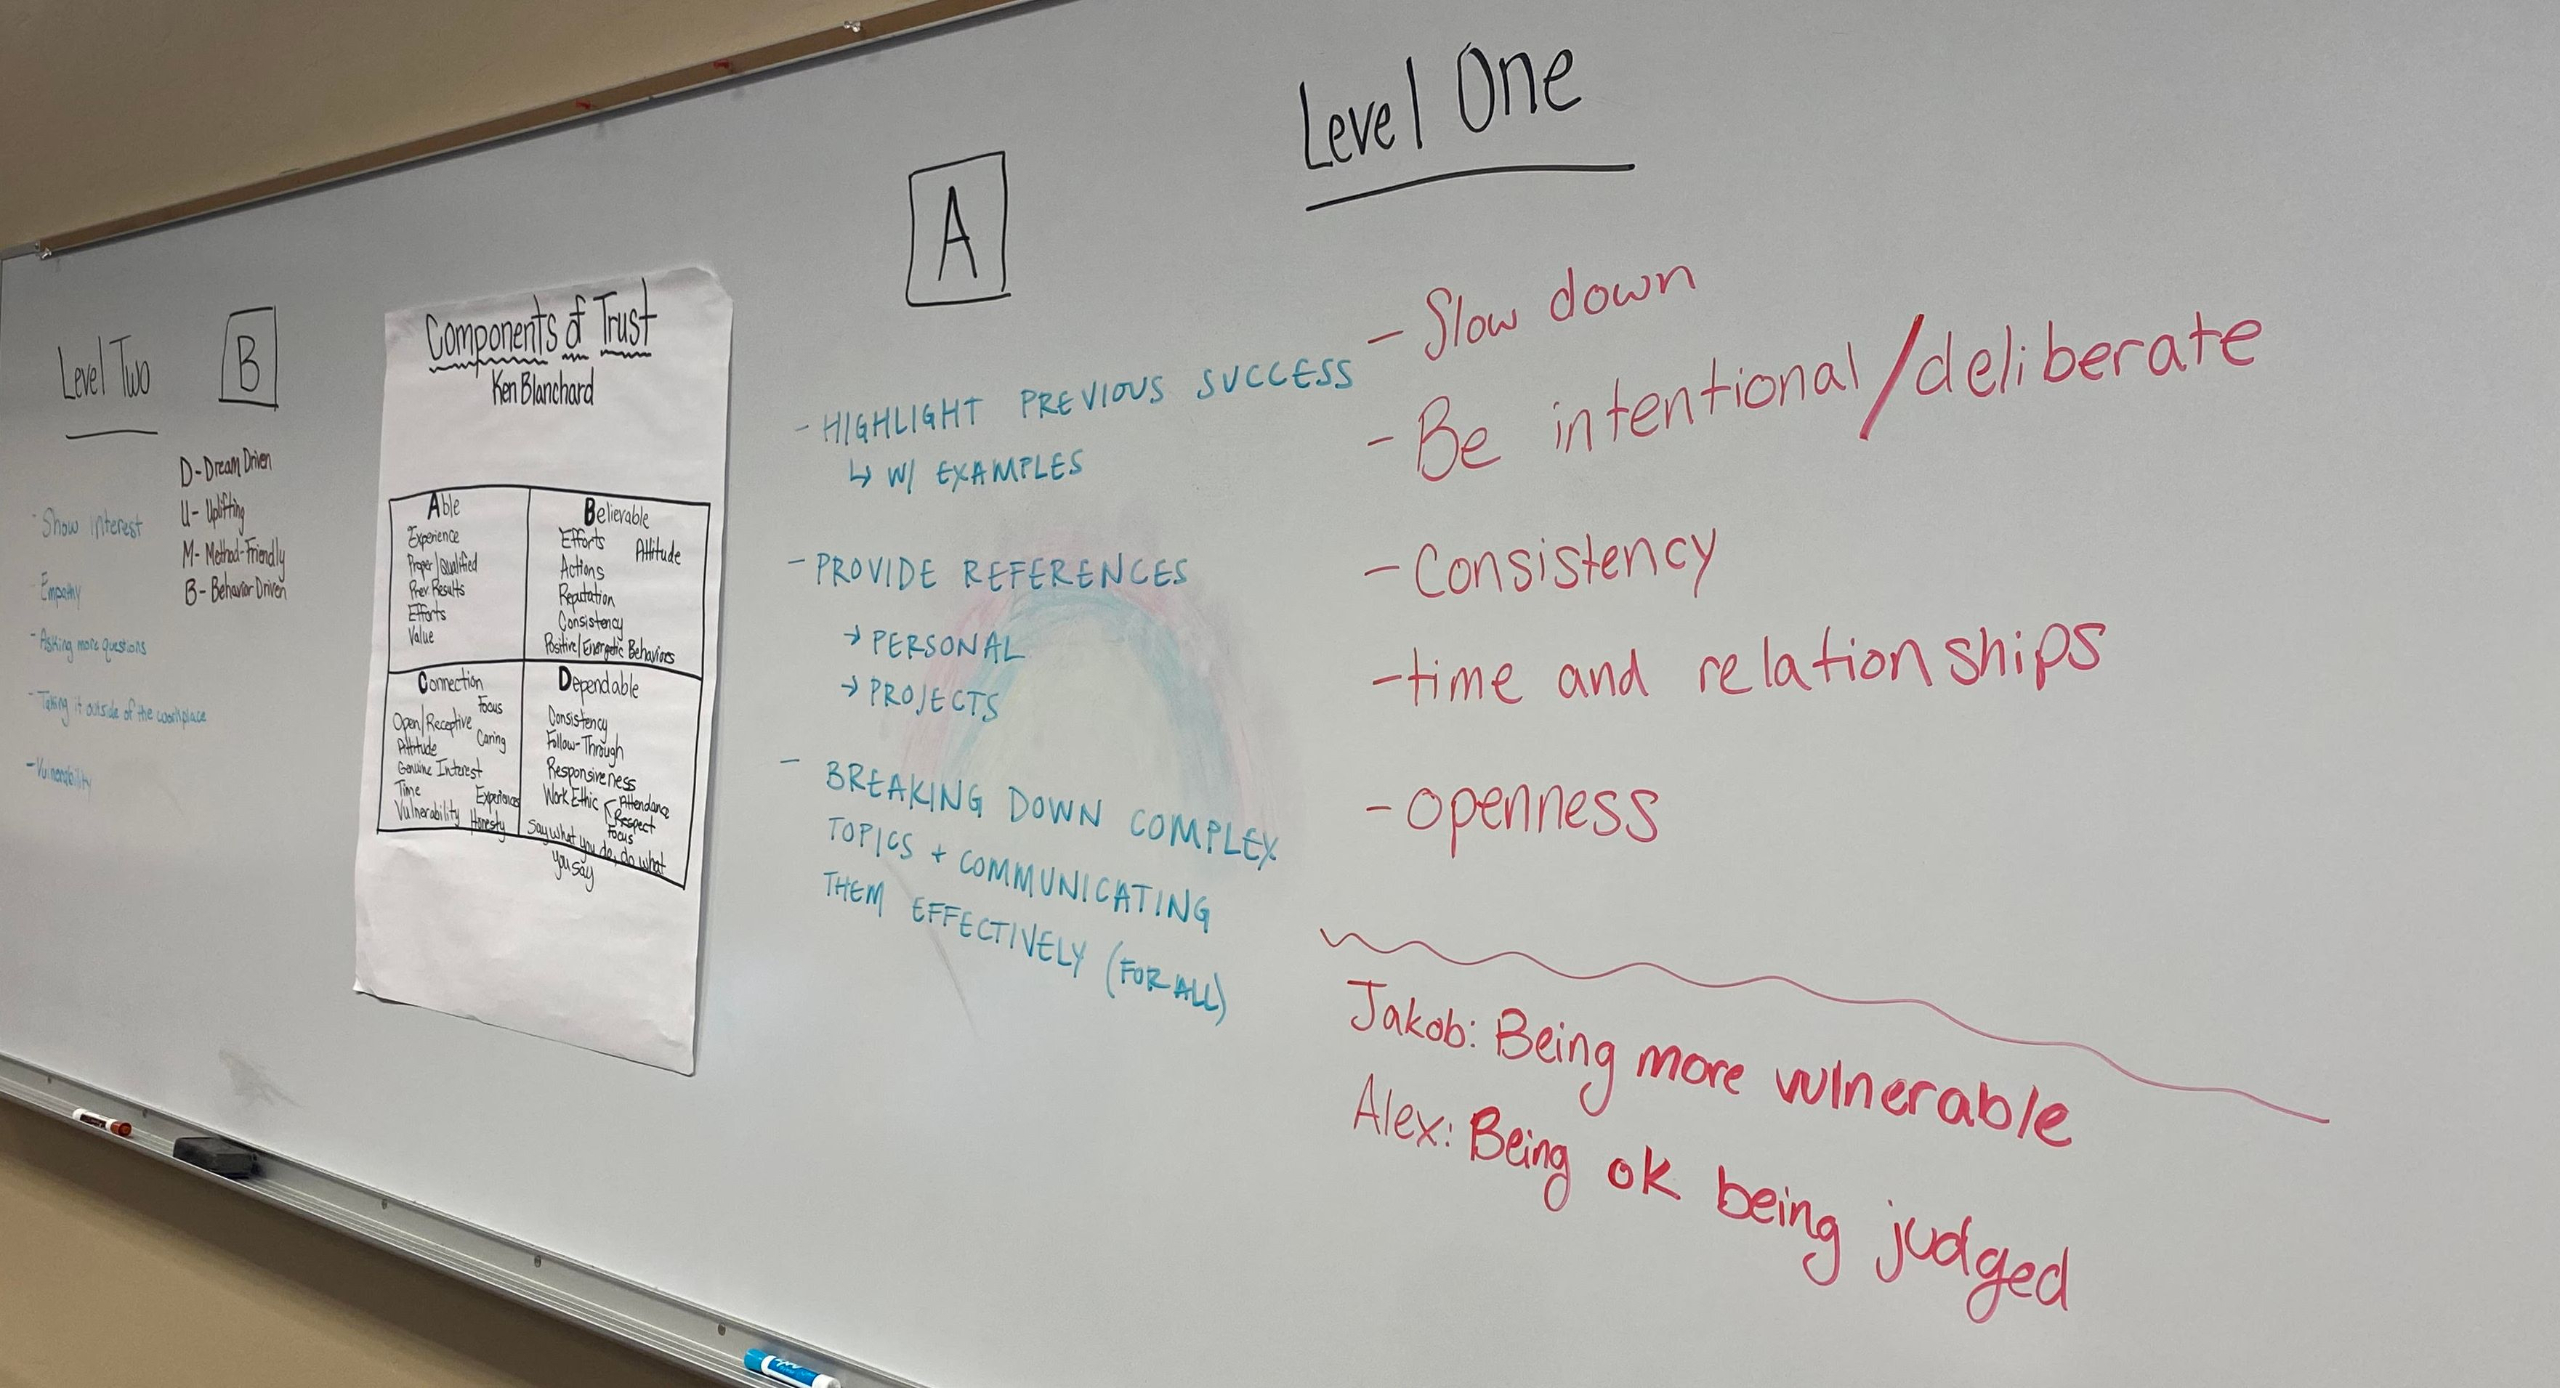 Level Two
B
D-Dream Driven
U-Uplifting
M-Method-Friendly
B-Behavior Driven
-Show interest
-Empathy
-Asking more questions
-Taking it outside of the workplace
-Vulnerability
Components of Trust
Ken Blanchard
Able
Experience
Proper/Qualified
Prev. Results
Efforts
Value
Believable
Efforts
Attitude
Actions
Reputation
Consistency
Positive/Energetic Behaviors
Connection
Focus
Open/Receptive
Attitude
Caring
Genuine Interest
Time
Experiences
Vulnerability
Honesty
Dependable
Consistency
Follow-Through
Responsiveness
Work Ethic
Attendance
Respect
Focus
Say what you do, do what
you say
A
- HIGHLIGHT PREVIOUS SUCCESS
↳ W/ EXAMPLES
- PROVIDE REFERENCES
→ PERSONAL
→ PROJECTS
- BREAKING DOWN COMPLEX
TOPICS + COMMUNICATING
THEM EFFECTIVELY (FOR ALL)
Level One
- Slow down
- Be intentional/deliberate
- Consistency
-time and relationships
- openness
Jakob: Being more vulnerable
Alex: Being ok being judged